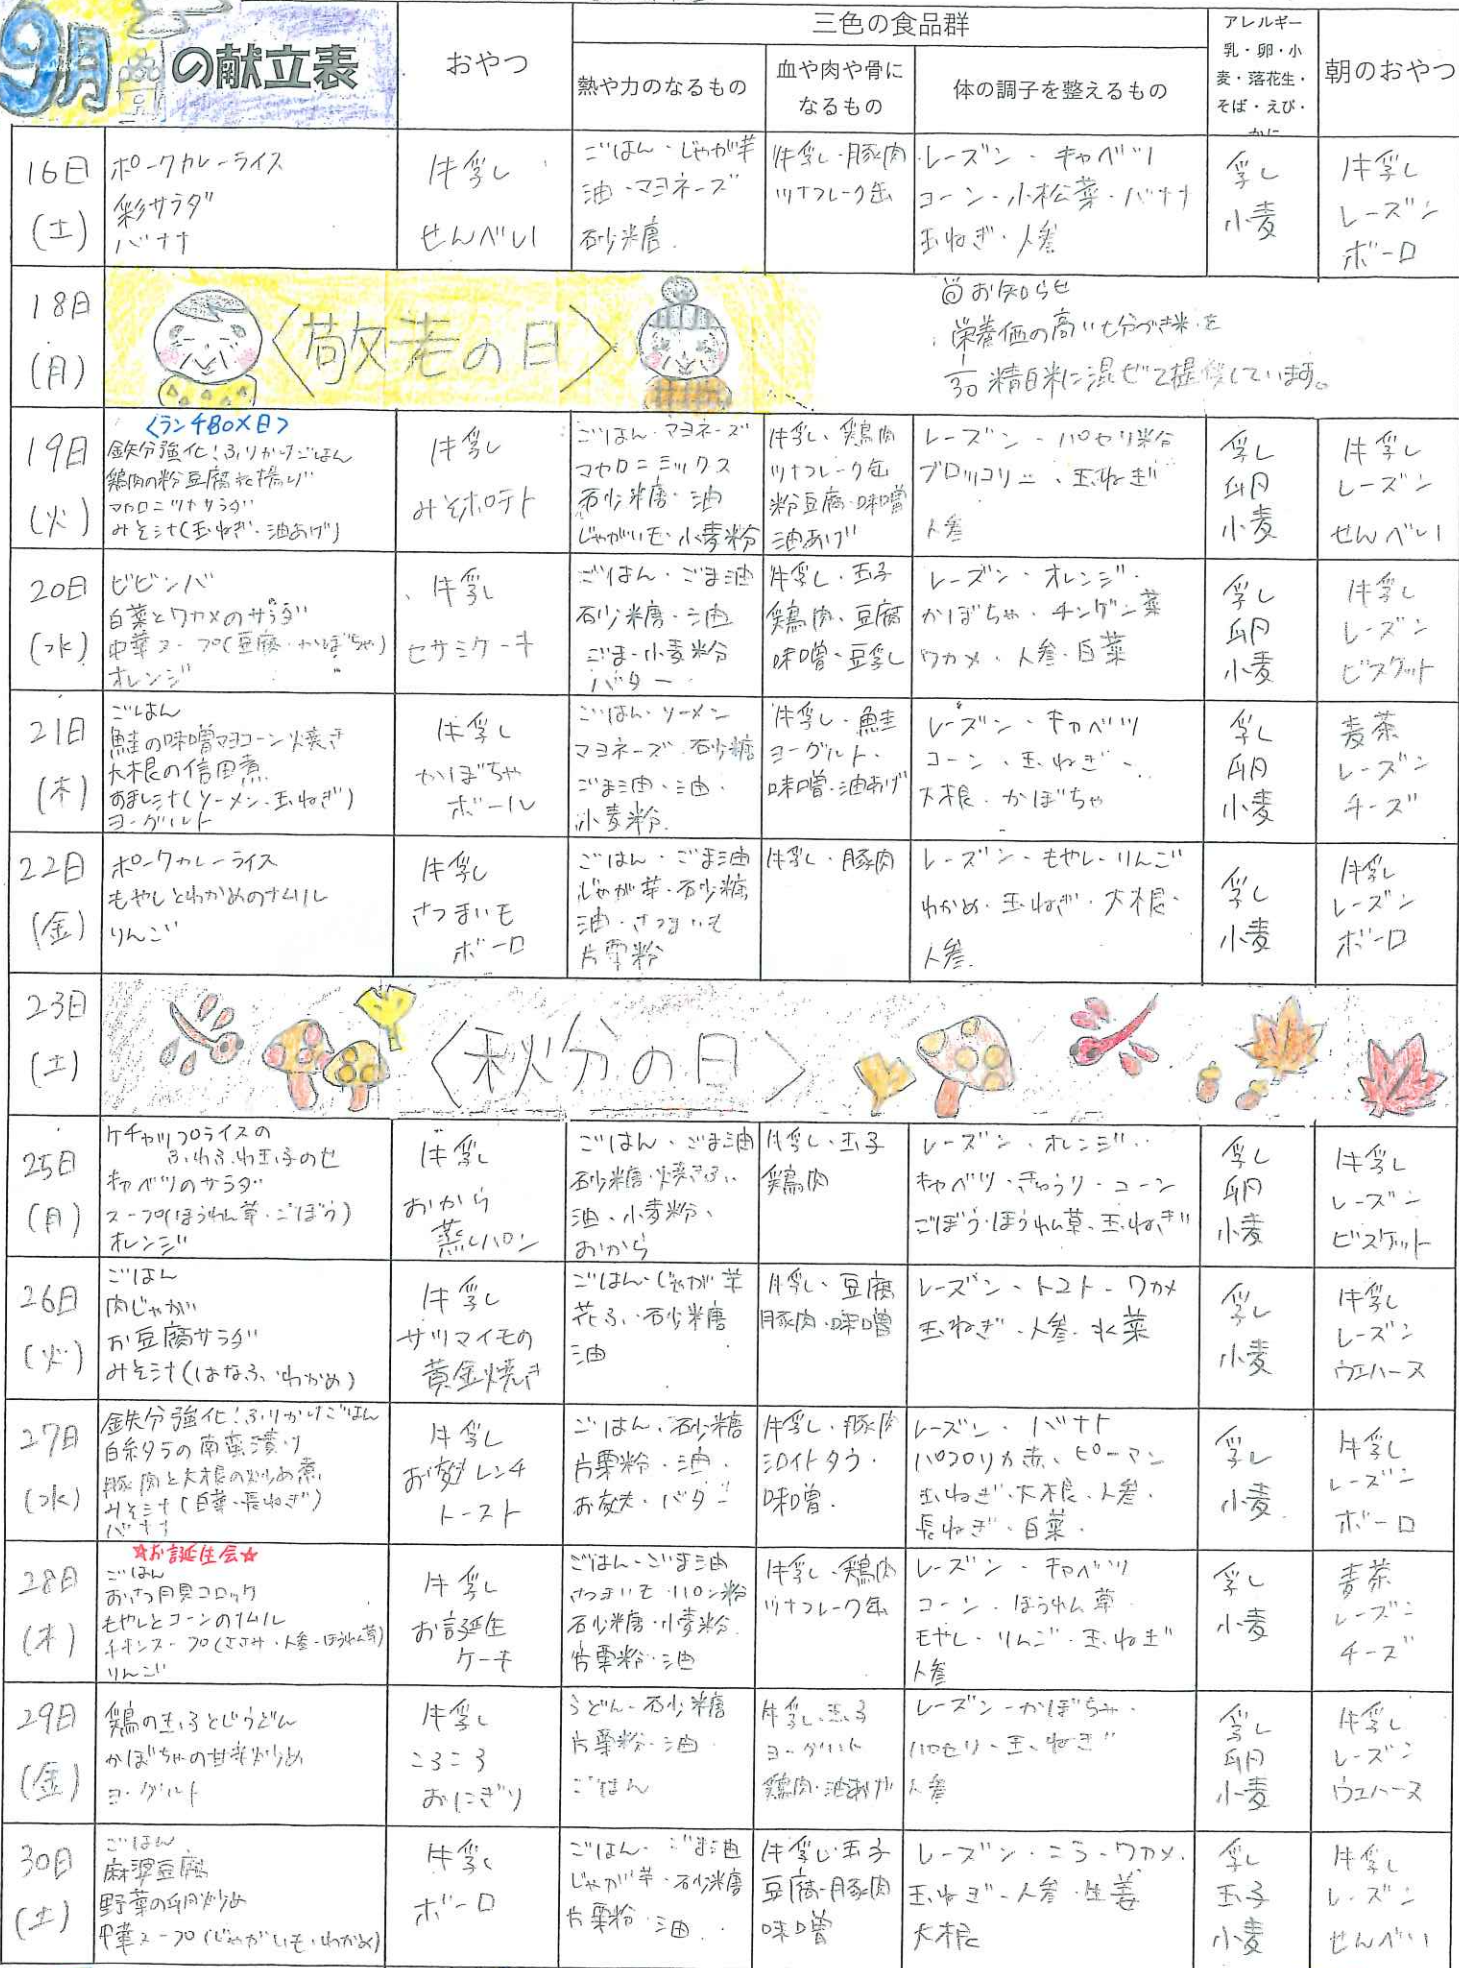 9月の献立表
おやつ
三色の食品群
熱や力のなるもの
血や肉や骨に
なるもの
体の調子を整えるもの
アレルギー
乳・卵・小
麦・落花生・
そば・えび・
かに
朝のおやつ
16日
(土)
ポークカレーライス
彩サラダ
バナナ
牛乳
せんべい
ごはん・じゃが芋
油・マヨネーズ
砂糖
牛乳・豚肉
ツナフレーク缶
レーズン・キャベツ
コーン・小松菜・バナナ
玉ねぎ・人参
乳
小麦
牛乳
レーズン
ボーロ
18日
(月)
〈敬老の日〉
お知らせ
栄養価の高い七分づき米を
1/30 精白米に混ぜて提供しています。
19日
(火)
〈ランチBOX日〉
鉄分強化!ふりかけごはん
鶏肉の粉豆腐衣揚げ
マカロニツナサラダ
みそ汁(玉ねぎ・油あげ)
牛乳
みそポテト
ごはん・マヨネーズ
マカロニミックス
砂糖・油
じゃがいも・小麦粉
牛乳・鶏肉
ツナフレーク缶
粉豆腐・味噌
油あげ
レーズン・パセリ粉
ブロッコリー・玉ねぎ
人参
乳
卵
小麦
牛乳
レーズン
せんべい
20日
(水)
ビビンバ
白菜とワカメのサラダ
中華スープ(豆腐・かぼちゃ)
オレンジ
牛乳
セサミケーキ
ごはん・ごま油
砂糖・油
ごま・小麦粉
バター
牛乳・玉子
鶏肉・豆腐
味噌・豆乳
レーズン・オレンジ・
かぼちゃ・チンゲン菜
ワカメ・人参・白菜
乳
卵
小麦
牛乳
レーズン
ビスケット
21日
(木)
ごはん
鮭の味噌マヨコーン焼き
大根の信田煮
おすまし汁(ソーメン・玉ねぎ)
ヨーグルト
牛乳
かぼちゃ
ボール
ごはん・ソーメン
マヨネーズ・砂糖
ごま油・油・
小麦粉
牛乳・鮭
ヨーグルト・
味噌・油あげ
レーズン・キャベツ
コーン・玉ねぎ・
大根・かぼちゃ
乳
卵
小麦
麦茶
レーズン
チーズ
22日
(金)
ポークカレーライス
もやしとわかめのナムル
りんご
牛乳
さつまいも
ボーロ
ごはん・ごま油
じゃが芋・砂糖
油・さつまいも
片栗粉
牛乳・豚肉
レーズン・もやし・りんご
わかめ・玉ねぎ・大根・
人参
乳
小麦
牛乳
レーズン
ボーロ
23日
(土)
〈秋分の日〉
25日
(月)
ケチャップライスの
ふわふわ玉子のせ
キャベツのサラダ
スープ(ほうれん草・ごぼう)
オレンジ
牛乳
おから
蒸しパン
ごはん・ごま油
砂糖・焼きふ・
油・小麦粉・
おから
牛乳・玉子
鶏肉
レーズン・オレンジ・
キャベツ・きゅうり・コーン
ごぼう・ほうれん草・玉ねぎ
乳
卵
小麦
牛乳
レーズン
ビスケット
26日
(火)
ごはん
肉じゃが
お豆腐サラダ
みそ汁(はなふ・わかめ)
牛乳
サツマイモの
黄金焼き
ごはん・じゃが芋
花ふ・砂糖
油
牛乳・豆腐
豚肉・味噌
レーズン・トマト・ワカメ
玉ねぎ・人参・水菜
乳
小麦
牛乳
レーズン
ウエハース
27日
(水)
鉄分強化!ふりかけごはん
白糸タラの南蛮漬け
豚肉と大根の炒め煮
みそ汁(白菜・長ねぎ)
バナナ
牛乳
お麩レンチ
トースト
ごはん・砂糖
片栗粉・油・
お麩・バター
牛乳・豚肉
シロイトタラ・
味噌
レーズン・バナナ
パプリカ赤・ピーマン
玉ねぎ・大根・人参・
長ねぎ・白菜
乳
小麦
牛乳
レーズン
ボーロ
28日
(木)
☆お誕生会☆
ごはん
おさつ月見コロッケ
もやしとコーンのナムル
チキンスープ(ささみ・人参・ほうれん草)
りんご
牛乳
お誕生
ケーキ
ごはん・ごま油
さつまいも・パン粉
砂糖・小麦粉
片栗粉・油
牛乳・鶏肉
ツナフレーク缶
レーズン・キャベツ
コーン・ほうれん草
モヤシ・りんご・玉ねぎ
人参
乳
小麦
麦茶
レーズン
チーズ
29日
(金)
鶏の玉子とじうどん
かぼちゃの甘辛炒め
ヨーグルト
牛乳
ころころ
おにぎり
うどん・砂糖
片栗粉・油
ごはん
牛乳・玉子
ヨーグルト
鶏肉・油あげ
レーズン・かぼちゃ・
パセリ・玉ねぎ
人参
乳
卵
小麦
牛乳
レーズン
ウエハース
30日
(土)
ごはん
麻婆豆腐
野菜の卵炒め
中華スープ(じゃがいも・わかめ)
牛乳
ボーロ
ごはん・ごま油
じゃが芋・砂糖
片栗粉・油
牛乳・玉子
豆腐・豚肉
味噌
レーズン・ニラ・ワカメ・
玉ねぎ・人参・生姜
大根
乳
玉子
小麦
牛乳
レーズン
せんべい